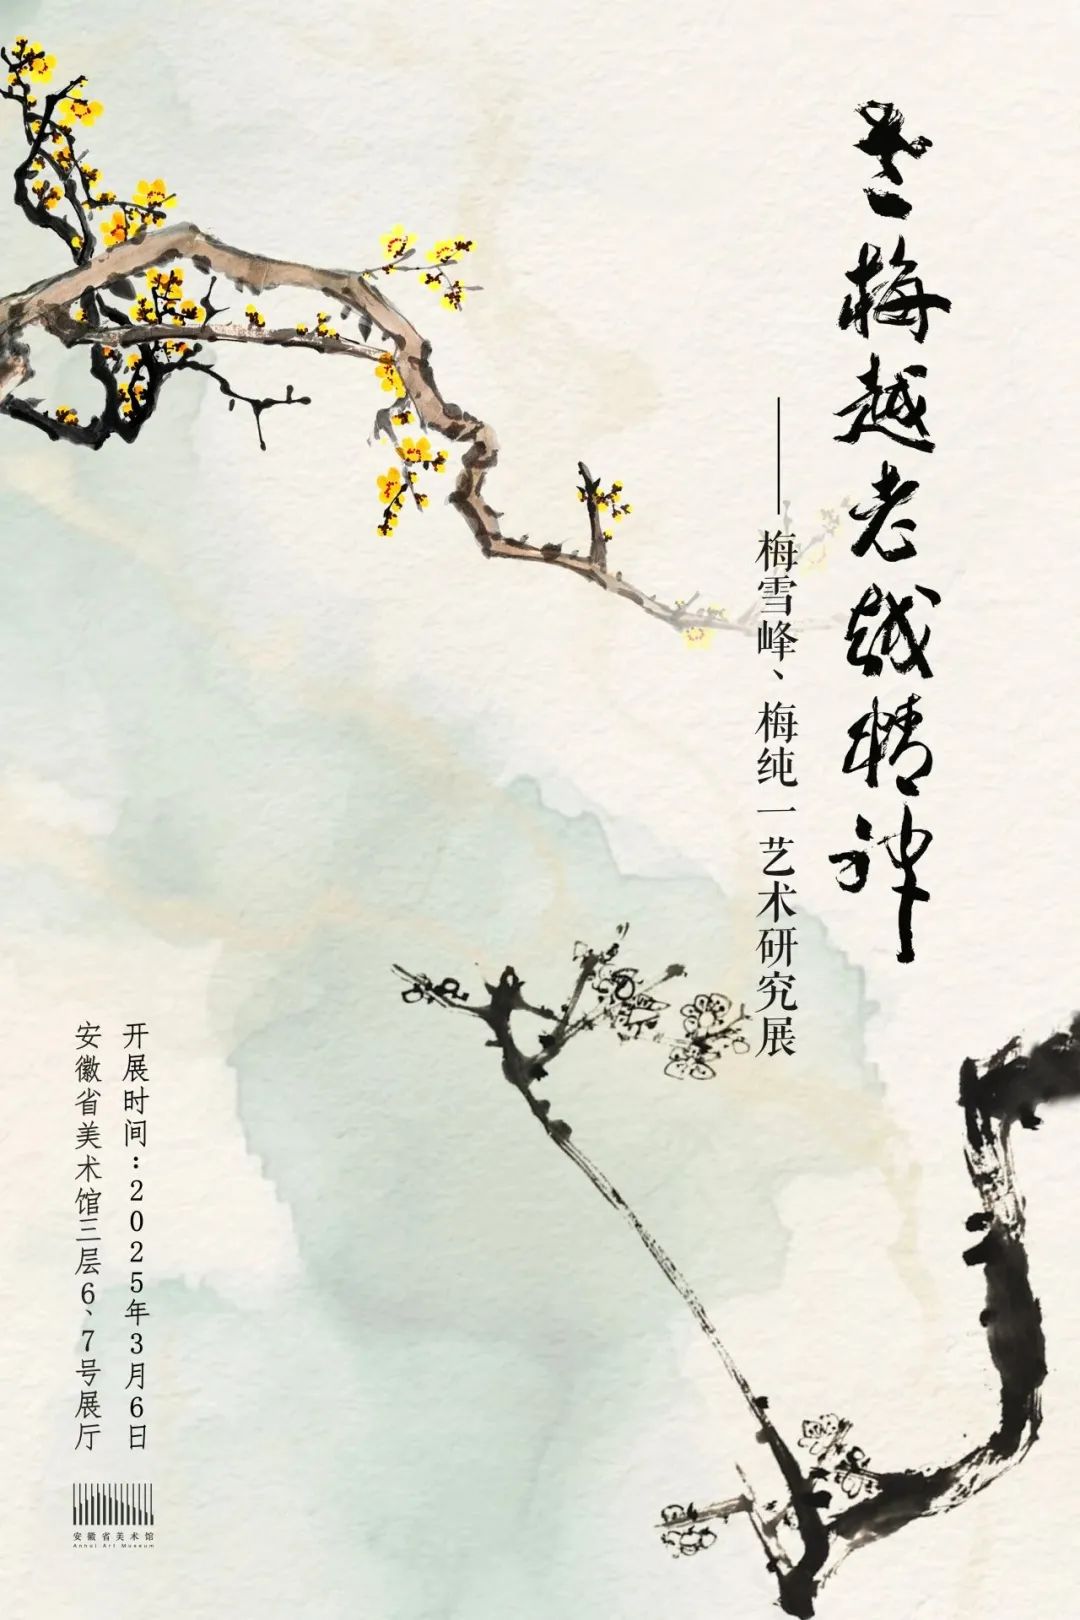 老梅越老越精神
——梅雪峰、梅纯一艺术研究展
开展时间:2025年3月6日
安徽省美术馆三层6、7号展厅
安徽省美术馆
Anhui Art Museum